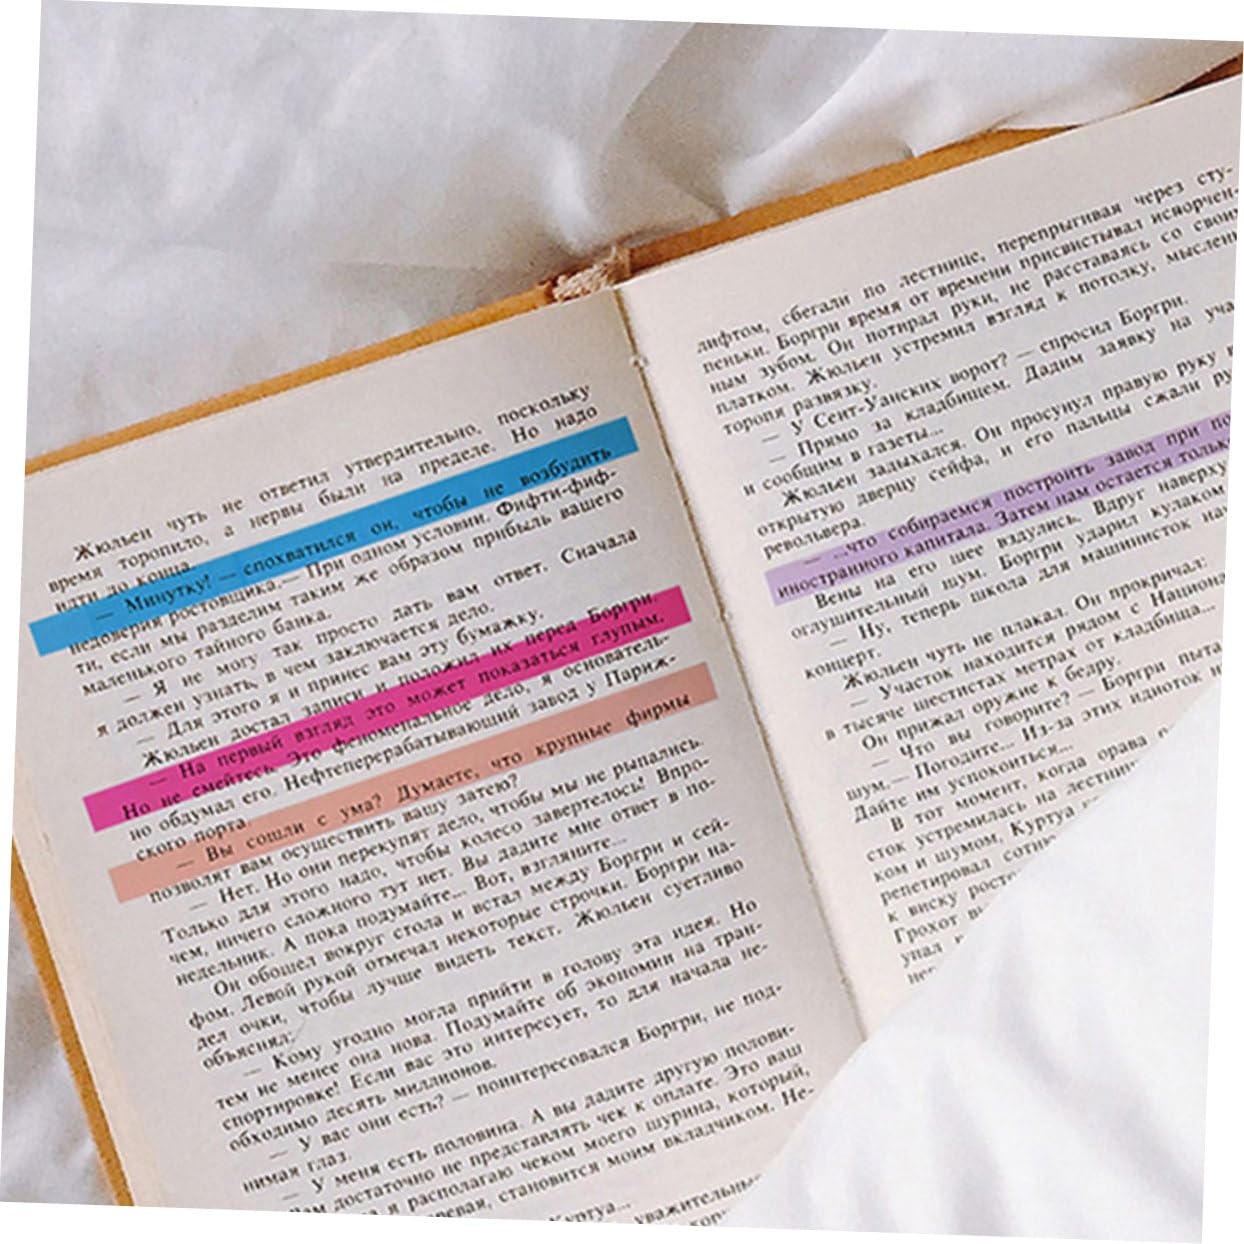 Жюльен чуть не ответил утвердительно, поскольку
время торопило, а нервы были на пределе. Но надо
идти до конца.
— Минутку! — спохватился он, чтобы не возбудить
недоверия ростовщика.— При одном условии. Фифти-фиф-
ти, если мы разделим таким же образом прибыль вашего
маленького тайного банка.
— Я не могу так просто дать вам ответ. Сначала
я должен узнать, в чем заключается дело.
— Для этого я и принес вам эту бумажку.
Жюльен достал записи и положил их перед Боргри.
— На первый взгляд это может показаться глупым.
Но не смейтесь. Это феноменальное дело, я основатель-
но обдумал его. Нефтеперерабатывающий завод у Париж-
ского порта.
— Вы сошли с ума? Думаете, что крупные фирмы
позволят вам осуществить вашу затею?
— Нет. Но они перекупят дело, чтобы мы не рыпались.
Только для этого надо, чтобы колесо завертелось! Впро-
чем, ничего сложного тут нет. Вы дадите мне ответ в по-
недельник. А пока подумайте... Вот, взгляните...
Он обошел вокруг стола и встал между Боргри и сей-
фом. Левой рукой отмечал некоторые строчки. Боргри на-
дел очки, чтобы лучше видеть текст. Жюльен суетливо
объяснял:
— Кому угодно могла прийти в голову эта идея. Но
тем не менее она нова. Подумайте об экономии на тран-
спортировке! Если вас это интересует, то для начала не-
обходимо десять миллионов.
— У вас они есть? — поинтересовался Боргри, не под-
нимая глаз.
— У меня есть половина. А вы дадите другую полови-
вам достаточно не представлять чек к оплате. Это ваш
я располагаю чеком моего шурина, который,
становится моим вкладчиком. Не-
Куртуа...
уважительны
лифтом, сбегали по лестнице, перепрыгивая через сту-
пеньки. Боргри время от времени присвистывал испорчен-
ным зубом. Он потирал руки, не расставаясь со своим
платком. Жюльен устремил взгляд к потолку, мыслен
торопя развязку.
— У Сент-Уанских ворот? — спросил Боргри.
— Прямо за кладбищем. Дадим заявку на уча
и сообщим в газеты...
Жюльен задыхался. Он просунул правую руку в
открытую дверцу сейфа, и его пальцы сжали ру
револьвера.
— ...что собираемся построить завод при по
иностранного капитала. Затем нам остается тольк
Вены на его шее вздулись. Вдруг наверху
оглушительный шум. Боргри ударил кулаком
— Ну, теперь школа для машинисток на
концерт.
Жюльен чуть не плакал. Он прокричал:
— Участок находится рядом с Национа
в тысяче шестистах метрах от кладбища...
Он прижал оружие к бедру.
— Что вы говорите? — Боргри пыта
шум.— Погодите... Из-за этих идиоток н
Дайте им успокоиться...
В тот момент, когда орава
сток устремилась на лестни
ком и шумом, Куртуа
репетировал сотн
к виску росто
Грохот
упал